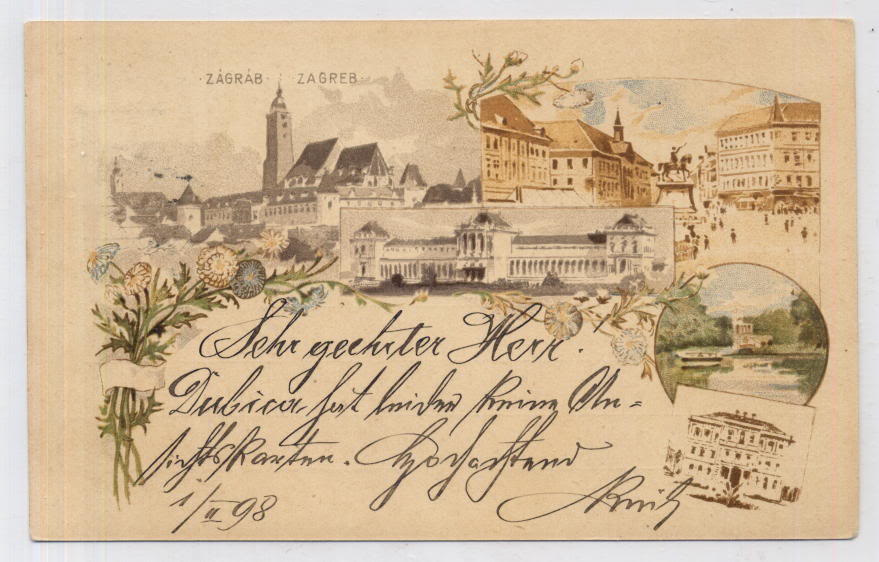 ·ZÁGRÁB· ZAGREB·
Sehr geehrter Herr!
Dubica hat leider keine An=
sichtskarten. Hochachtend
1/II 98